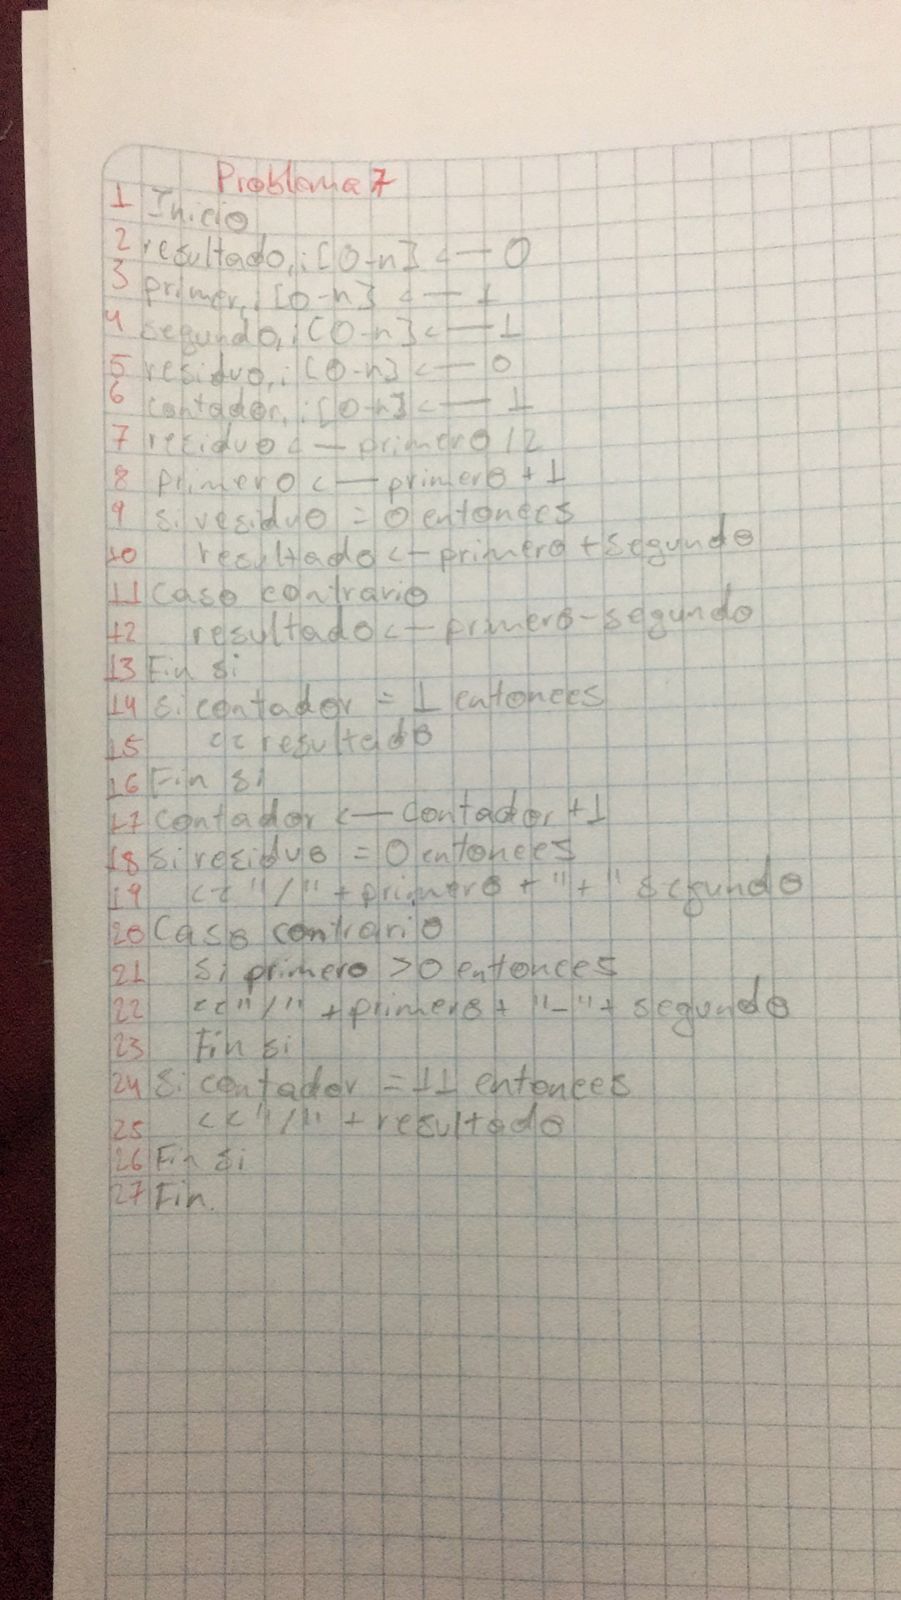 Problema 7
1 Inicio
2 resultado,:[0-n] <— 0
3 primer,:[0-n] <— 1
4 segundo,:[0-n] <— 1
5 residuo,:[0-n] <— 0
6 contador,:[0-n] <— 1
7 residuo <— primero /2
8 primero <— primero + 1
9 si residuo = 0 entonces
10 resultado <— primero + segundo
11 Caso contrario
12 resultado <— primero - segundo
13 Fin si
14 si contador = 1 entonces
15 << resultado
16 Fin si
17 contador <— contador + 1
18 si residuo = 0 entonces
19 << "/" + primero + "+" segundo
20 Caso contrario
21 si primero > 0 entonces
22 << "/" + primero + "-" + segundo
23 Fin si
24 si contador = 11 entonces
25 << "/" + resultado
26 Fin si
27 Fin.